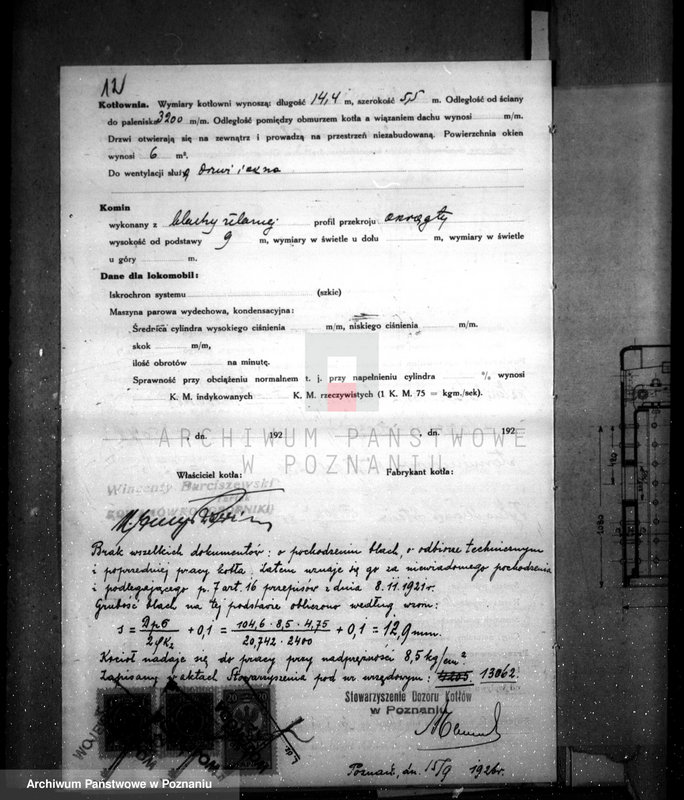 12
Kotłownia. Wymiary kotłowni wynoszą: długość 14,4 m, szerokość 5,5 m. Odległość od ściany
do paleniska 3200 m/m. Odległość pomiędzy obmurzem kotła a wiązaniem dachu wynosi m/m.
Drzwi otwierają się na zewnątrz i prowadzą na przestrzeń niezabudowaną. Powierzchnia okien
wynosi 6 m².
Do wentylacji służą drzwi i okna
Komin
wykonany z blachy żelaznej profil przekroju okrągły
wysokość od podstawy 9 m, wymiary w świetle u dołu m, wymiary w świetle
u góry m.
Dane dla lokomobil:
Iskrochron systemu (szkic)
Maszyna parowa wydechowa, kondensacyjna:
Średnica cylindra wysokiego ciśnienia m/m, niskiego ciśnienia m/m.
skok m/m,
ilość obrotów na minutę.
Sprawność przy obciążeniu normalnem t. j. przy napełnieniu cylindra % wynosi
K. M. indykowanych K. M. rzeczywistych (1 K. M. 75 = kgm./sek).
dn. 192 dn. 192
ARCHIWUM PAŃSTWOWE
W POZNANIU
Właściciel kotła: Fabrykant kotła:
Wincenty Barciszewski
Brak wszelkich dokumentów: o pochodzeniu blach, o odbiorze technicznym
i poprzedniej pracy kotła. Zatem uznaje się go za niewiadomego pochodzenia
i podlegającego p. 7 art. 16 przepisów z dnia 8.11.1921r.
Grubość blach na tej podstawie obliczono według wzoru:
s = Dpσ / 2φk₂ + 0,1 = 104,6 · 8,5 · 4,75 / 20,742 · 2400 + 0,1 = 12,9 mm.
Kocioł nadaje się do pracy przy nadprężności 8,5 kg/cm²
Zapisany w aktach Stowarzyszenia pod nr. urzędowym: 13062.
Stowarzyszenie Dozoru Kotłów
w Poznaniu
Poznań, dn. 15/9 1926r.
1080
Archiwum Państwowe w Poznaniu